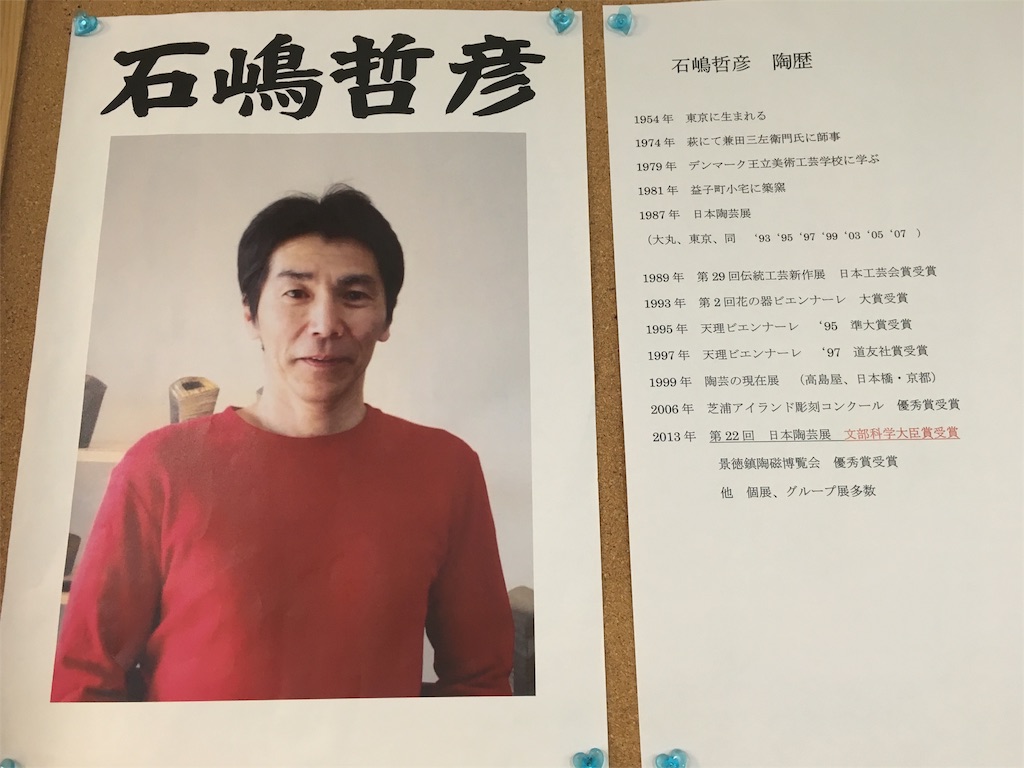 石嶋哲彦
石嶋哲彦　陶歴
1954年　東京に生まれる
1974年　萩にて兼田三左衛門氏に師事
1979年　デンマーク王立美術工芸学校に学ぶ
1981年　益子町小宅に築窯
1987年　日本陶芸展
（大丸、東京、同　‘93 ‘95 ‘97 ‘99 ‘03 ‘05 ‘07　）
1989年　第29回伝統工芸新作展　日本工芸会賞受賞
1993年　第2回花の器ビエンナーレ　大賞受賞
1995年　天理ビエンナーレ　‘95　準大賞受賞
1997年　天理ビエンナーレ　‘97　道友社賞受賞
1999年　陶芸の現在展　（高島屋、日本橋・京都）
2006年　芝浦アイランド彫刻コンクール　優秀賞受賞
2013年　第22回　日本陶芸展　文部科学大臣賞受賞
景徳鎮陶磁博覧会　優秀賞受賞
他　個展、グループ展多数